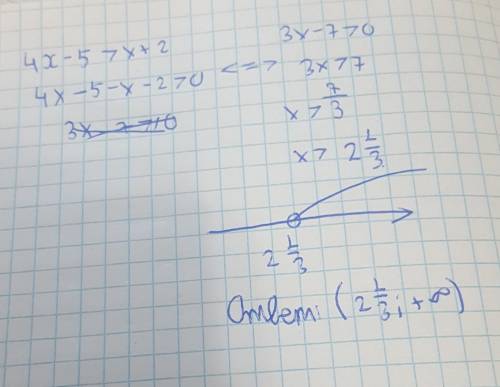 4x-5>x+2
4x-5-x-2>0 <=>
3x-7>0
3x>7
x>7/3
x>2 1/3
2 1/3
Ответ: (2 1/3; +∞)